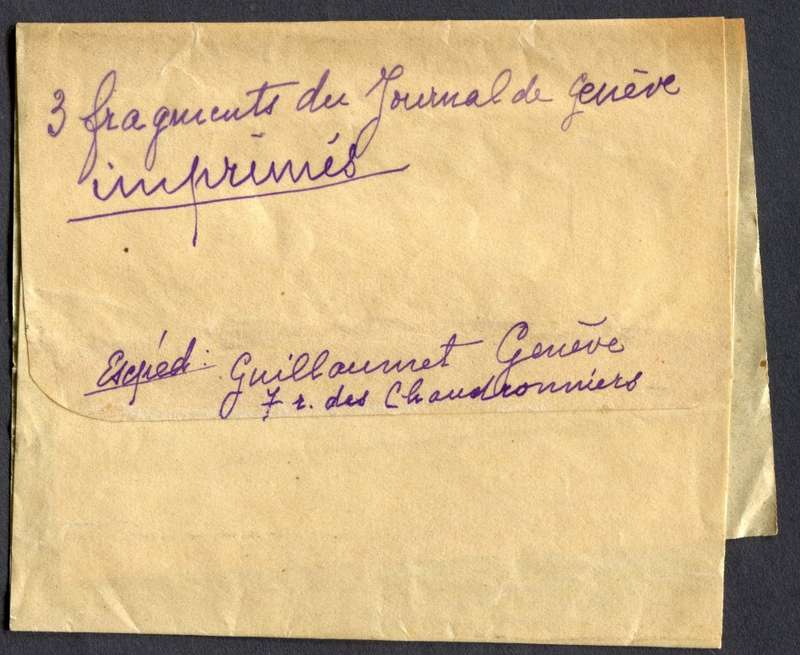 3 fragments du Journal de Genève
imprimés
Expéd: Guillaumet Genève
7 r. des Chaudronniers